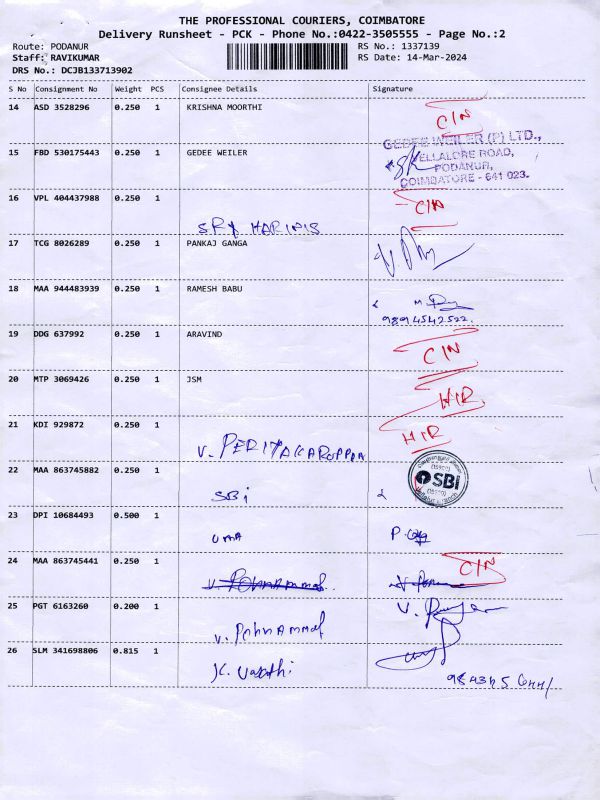 THE PROFESSIONAL COURIERS, COIMBATORE
Delivery Runsheet - PCK - Phone No.:0422-3505555 - Page No.:2
Route: PODANUR RS No.: 1337139
Staff: RAVIKUMAR RS Date: 14-Mar-2024
DRS No.: DCJB133713902
S No Consignment No Weight PCS Consignee Details Signature
14 ASD 3528296 0.250 1 KRISHNA MOORTHI
CIN
GEDEE WEILER (P) LTD.,
15 FBD 530175443 0.250 1 GEDEE WEILER
VELLALORE ROAD,
PODANUR,
COIMBATORE - 641 023.
16 VPL 404437988 0.250 1 CIN
SRX HARINIS
17 TCG 8026289 0.250 1 PANKAJ GANGA
18 MAA 944483939 0.250 1 RAMESH BABU
9894542522.
19 DDG 637992 0.250 1 ARAVIND
CIN
20 MTP 3069426 0.250 1 JSM
HIR
21 KDI 929872 0.250 1 HIR
V. PERIYAKARUPPAN
22 MAA 863745882 0.250 1 SBI
SBi
23 DPI 10684493 0.500 1
UMA
24 MAA 863745441 0.250 1 CIN
25 PGT 6163260 0.200 1
V. Ponnammal
26 SLM 341698806 0.815 1
K. Vasathi